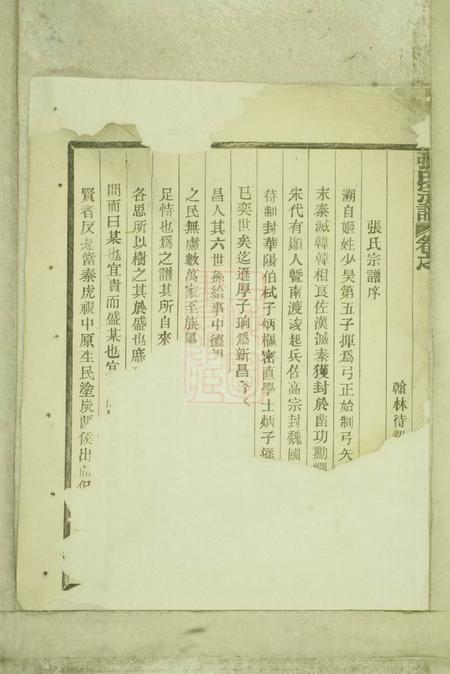 張氏宗譜卷序
張氏宗譜序
翰林待
溯自姬姓少昊第五子揮爲弓正始制弓矢
末秦滅韓韓相良佐漢滅秦獲封於凿功勳
宋代有顯人暨南渡浚起兵佐高宗封魏國
待制封華陽伯栻子炳樞密直學士炳子
已奕世矣迄遜厚子珦爲新昌令
昌人其六世孫給事中德
之民無慮數萬家至族屬
足恃也爲之譜其所自來
各思所以樹之其於盛也庶
問而曰某也宜貴而盛某也宜
賢者反是當秦虎視中原生民塗炭西侯出而